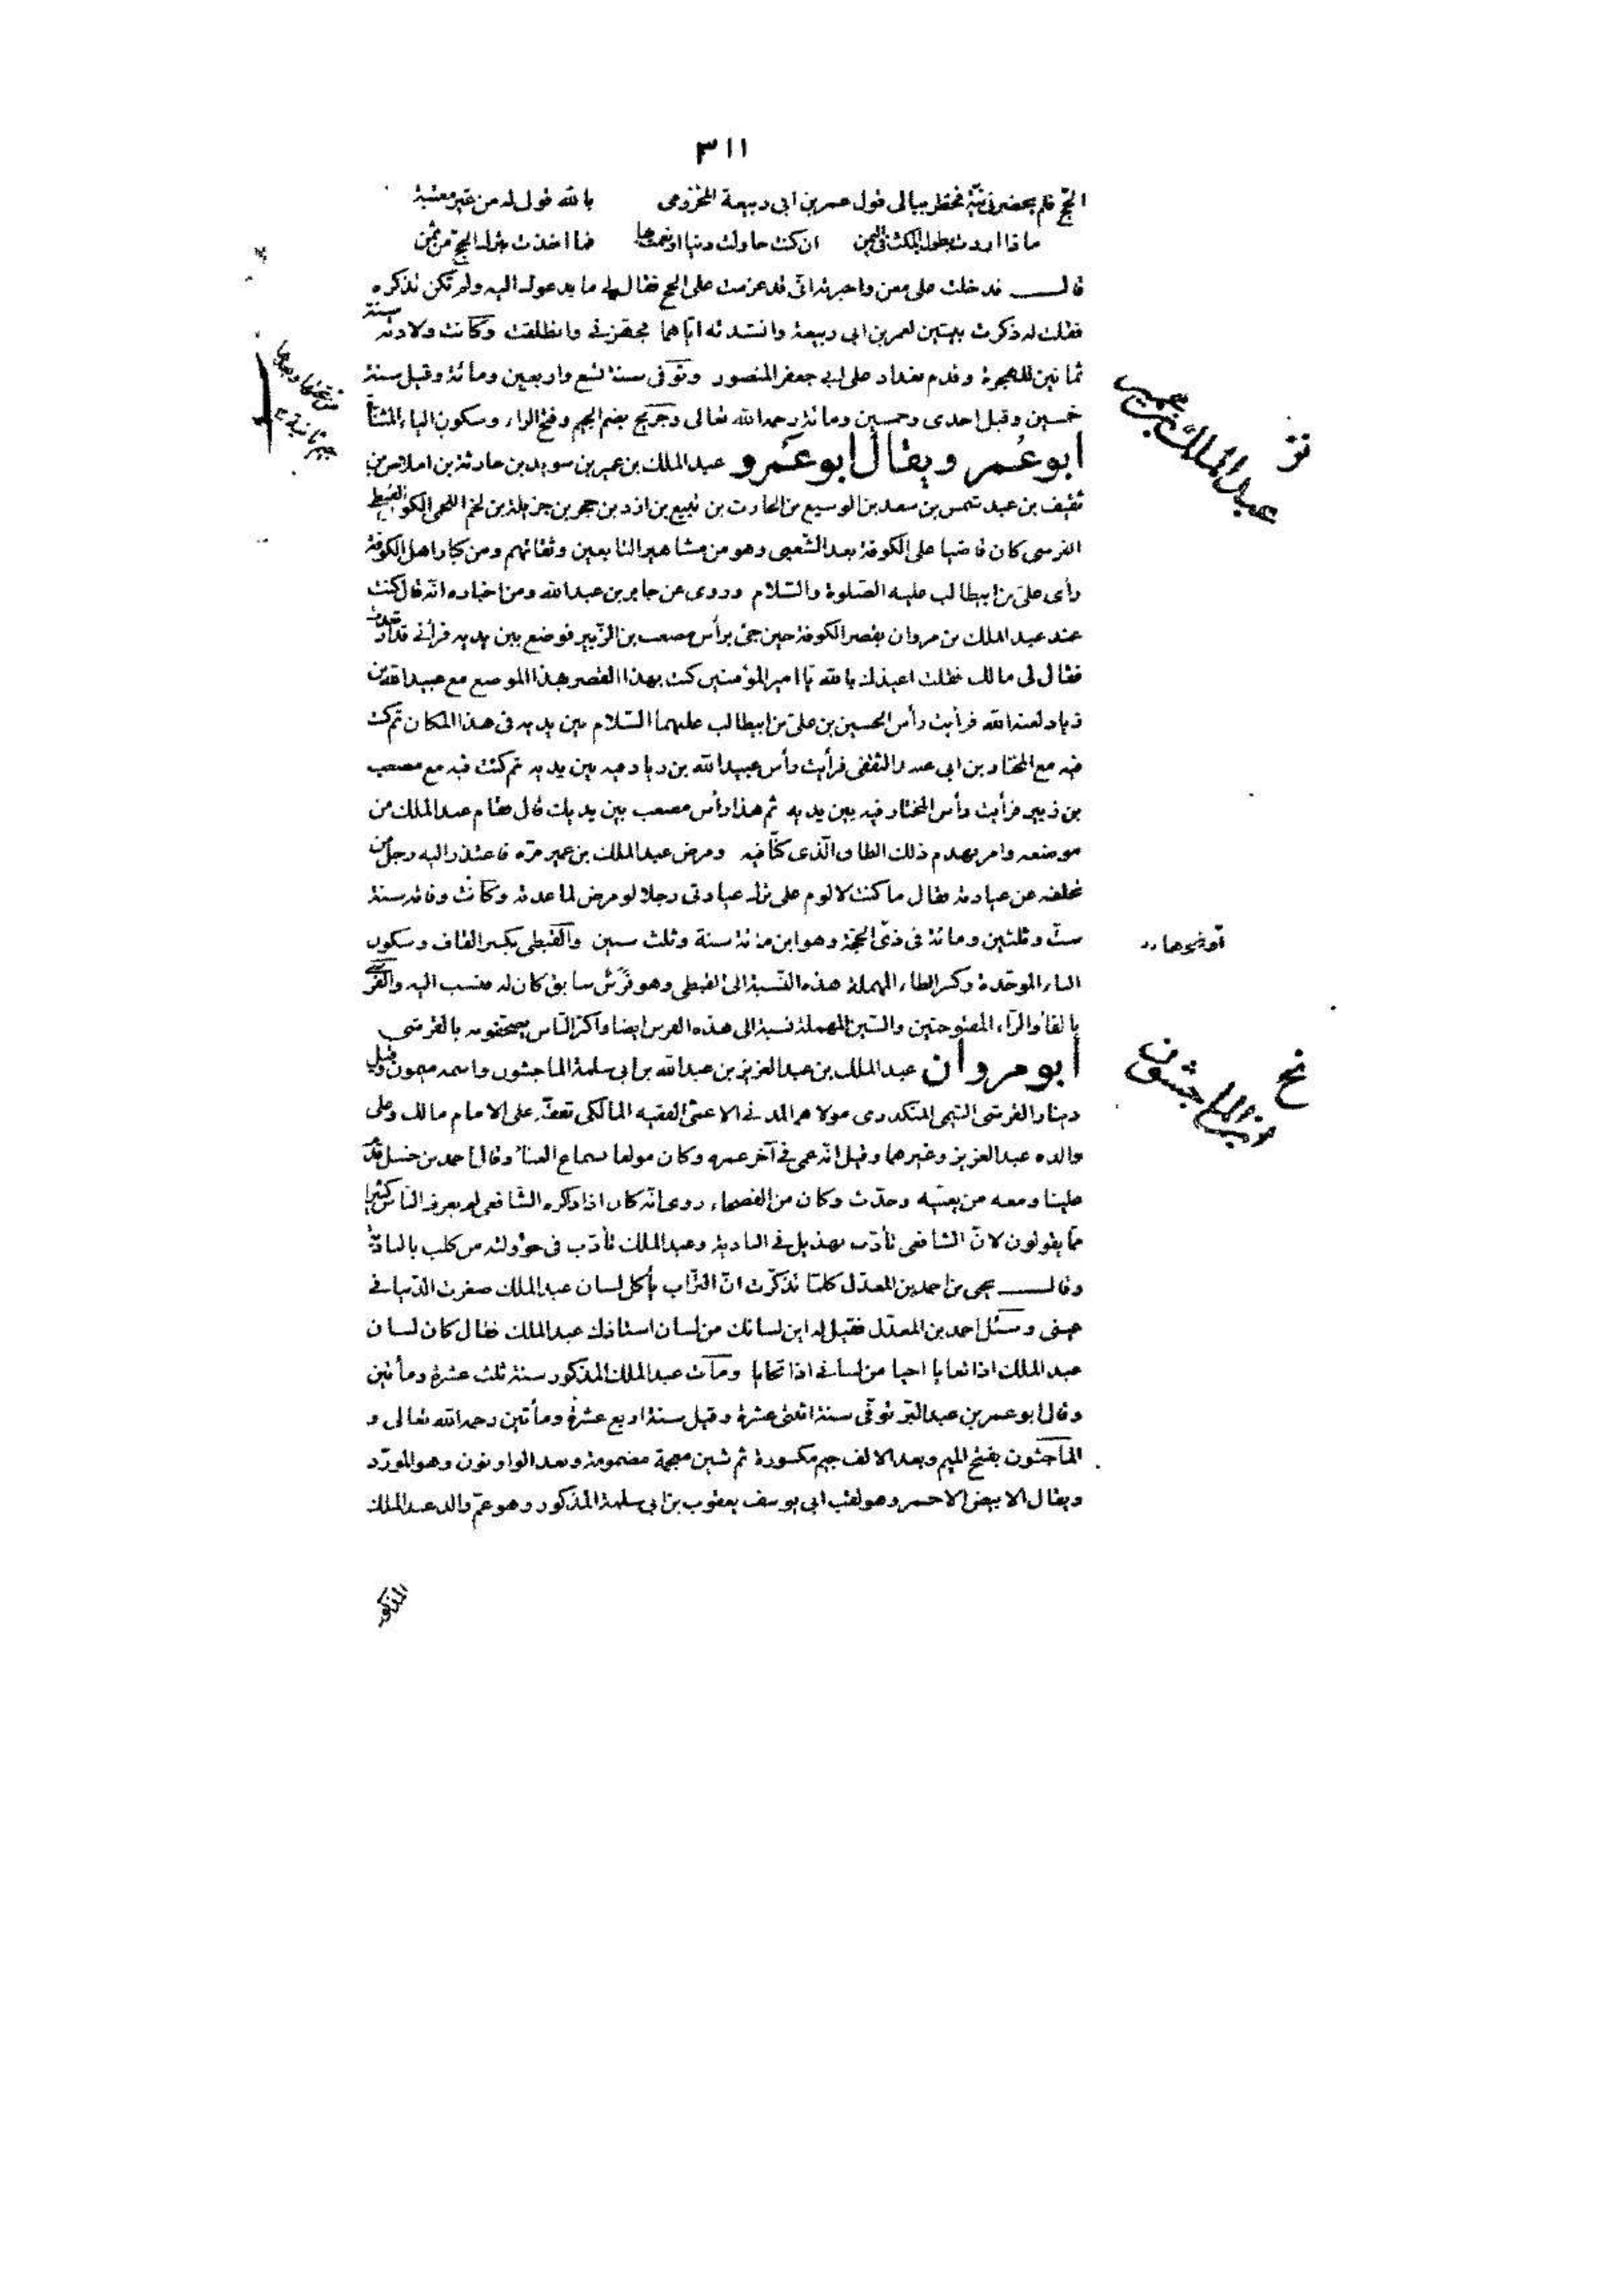 ٣١١
الحجّ فلم يحضرنى نيّة فخطر ببالى قول عمر بن ابى ربيعة المخزومى بالله قولى له من غير معتبة
ماذا اردت بطول المكث فى اليمن ان كنت حاولت دنيا او نعمت بها فما اخذت بترك الحجّ من ثمن
قالــ فدخلت على معن واخبرته انّى قد عزمت على الحج فقال لى ما يدعوك اليه ولم تكن تذكره
فقلت له ذكرت بيتين لعمر بن ابى ربيعة وانشدته ايّاهما فجهّزنى وانطلقت وكانت ولادته سنة
ثمانين للهجرة وقدم بغداد على ابى جعفر المنصور وتوفى سنة تسع واربعين ومائة وقيل سنة
خمسين وقيل احدى وخمسين ومائة رحمه الله تعالى وجريج بضم الجيم وفتح الراء وسكون الياء المثناة
ابو عُمر ويقال ابو عَمرو عبد الملك بن عمير بن سويد بن حارثة بن املاص بن
ثقيف بن عبد شمس بن سعد بن الوسيع بن الحارث بن نبيع بن ازد بن حجر بن جزيلة بن لخم اللخمى الكوفى القبطى
الفرسى كان قاضيا على الكوفة بعد الشّعبى وهو من مشاهير التابعين وثقاتهم ومن كبار اهل الكوفة
رأى علىّ بن ابيطالب عليه الصّلوة والسّلام وروى عن جابر بن عبد الله ومن اخباره انّه قال كنت
عند عبد الملك بن مروان بقصر الكوفة حين جئ برأس مصعب بن الزّبير فوضع بين يديه فرآنى قد ارتعدت
فقال لى مالك فقلت اعيذك بالله يا امير المؤمنين كنت بهذا القصر بهذا الموضع مع عبيد الله بن
زياد لعنه الله فرأيت رأس الحسين بن علىّ بن ابيطالب عليهما السّلام بين يديه فى هذا المكان ثم كنت
فيه مع المختار بن ابى عبيد الثقفى فرأيت رأس عبيد الله بن زياد فيه بين يديه ثم كنت فيه مع مصعب
بن زبير فرأيت رأس المختار فيه بين يديه ثم هذا رأس مصعب بين يديك قال فقام عبد الملك من
موضعه وامر بهدم ذلك الطاق الّذى كنّا فيه ومرض عبد الملك بن عمير مرّه فاعتذر اليه رجل من
تخلفه عن عيادته فقال ما كنت لالوم على ترك عيادتى رجلا لو مرض لما عدته وكانت وفاته سنة
ستّ وثلثين ومائة فى ذى الحجّة وهو ابن مائة سنة وثلث سنين والقبطى بكسر القاف وسكون
الباء الموحّدة وكسر الطاء المهملة هذه النّسبة الى القبطى وهو فَرَس سابق كان له فنسب اليه والفرسى
بالفاء والرّاء المفتوحتين والسّين المهملة نسبة الى هذه الفرس ايضا واكثر النّاس يصحّفونه بالقرشى
أبو مروان عبد الملك بن عبد العزيز بن عبد الله بن ابى سلمة الماجشون واسمه ميمون وقيل
دينار القرشى التيمى المنكدرى مولاهم المدنى الاعمى الفقيه المالكى تفقّه على الامام مالك وعلى
والده عبد العزيز وغيرهما وقيل انّه عمى فى آخر عمره وكان مولعا بسماع الغنا وقال احمد بن حنبل قدم
علينا ومعه من يغنّيه وحدّث وكان من الفصحاء روى انّه كان اذا ذاكره الشّافعى لم يعرف النّاس كثيرا
ممّا يقولون لانّ الشافعى تأدّب بهذيل فى البادية وعبد الملك تأدّب فى خؤولته من كلب بالبادية
وقالــ يحيى بن احمد بن المعذّل كلّما تذكّرت انّ التّراب يأكل لسان عبد الملك صغرت الدّنيا فى
عينى وسئل احمد بن المعذّل فقيل له اين لسانك من لسان استاذك عبد الملك فقال كان لسان
عبد الملك اذا تعايا احيا من لسانى اذا تحايا ومات عبد الملك المذكور سنة ثلث عشرة ومأتين
وقال ابو عمر بن عبد البّر توفّى سنة اثنتى عشرة وقيل سنة اربع عشرة ومأتين رحمه الله تعالى و
الماجشون بفتح الميم وبعد الالف جيم مكسورة ثم شين معجمة مضمومة وبعد الواو نون وهو المورّد
ويقال الابيض الاحمر وهو لقب ابى يوسف يعقوب بن ابى سلمة المذكور وهو عمّ والد عبد الملك
المذكور
عبد الملك بن عمير
ابن الماجشون